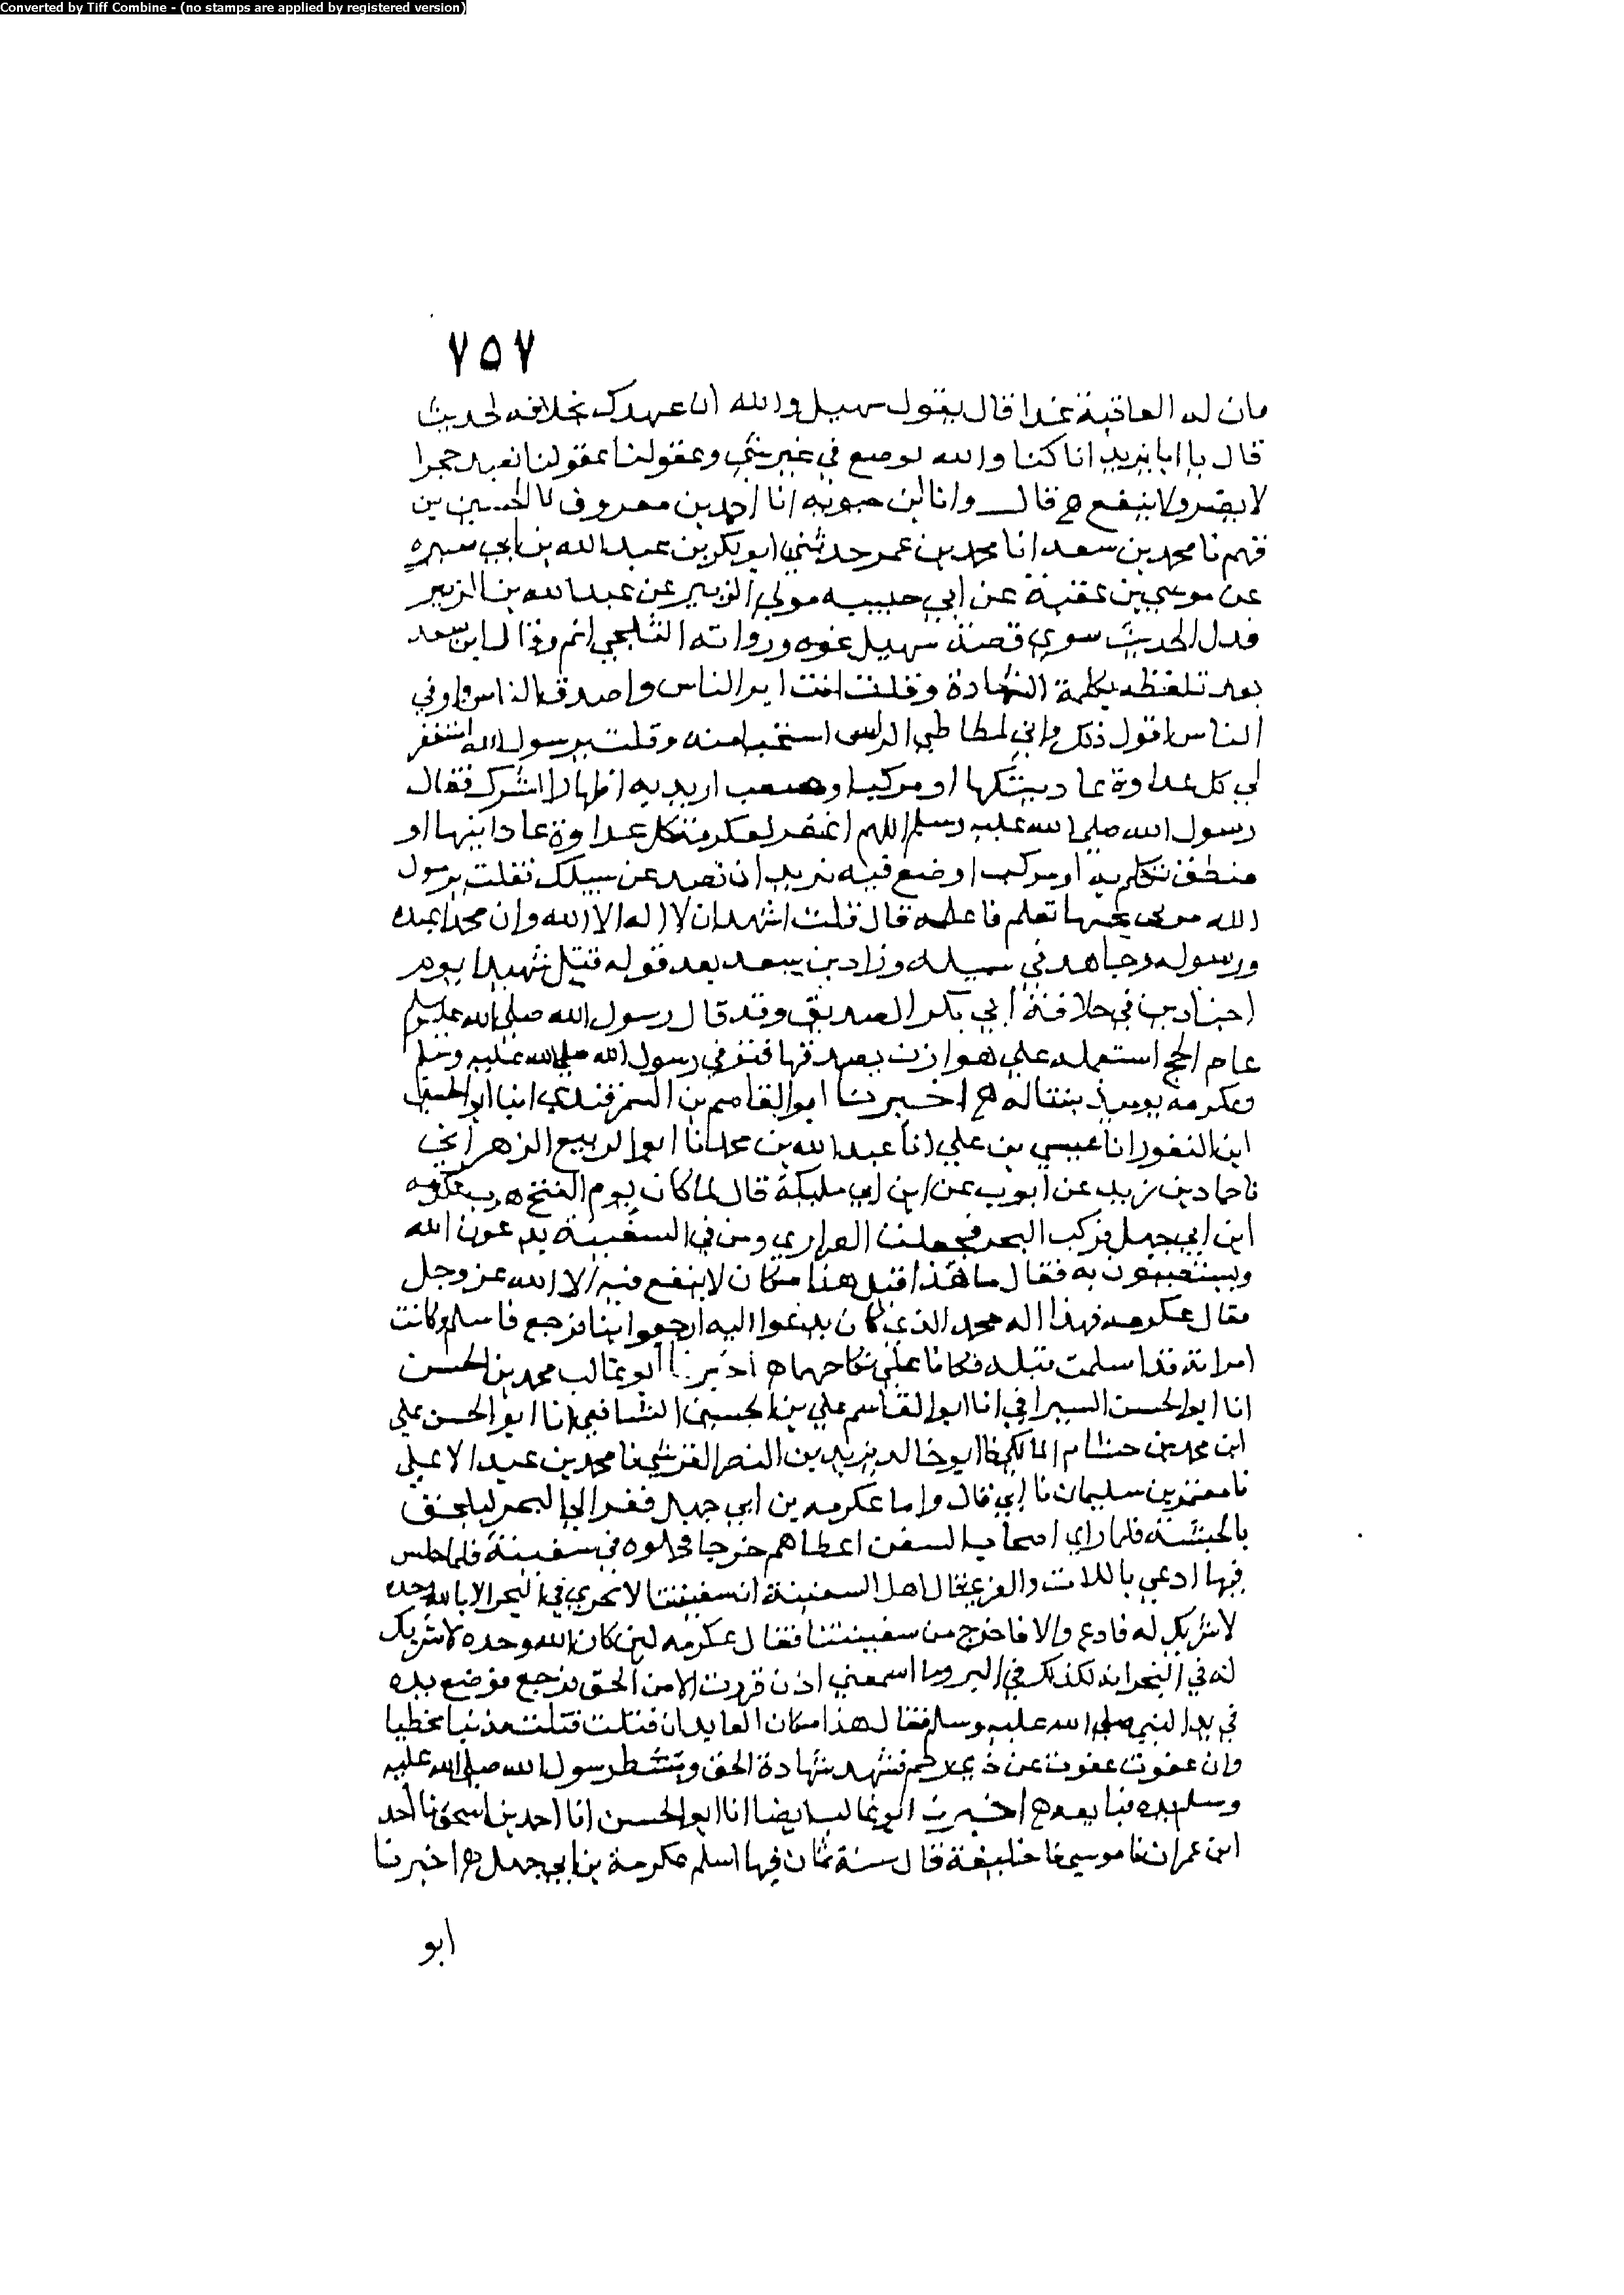 Converted by Tiff Combine - (no stamps are applied by registered version)
٧٥٧
فان له العاقبة غدا قال يقول سهيل والله ان عهدك بخلافه لحديث
قال يا ابا يزيد انا كنا والله نوضع في غير شي وعقولنا عقولنا نعبد حجرا
لا يضر ولا ينفع ه قال وانا ابن حيويه انا احمد بن معروف نا الحسين بن
فهم نا محمد بن سعد انا محمد بن عمر حدثني ابو بكر بن عبد الله بن ابي سبره
عن موسي بن عقبة عن ابي حبيبه مولي الزبير عن عبد الله بن الزبير
الحديث سوي قصة سهيل ورواته الثلجي اتم وقال ابن سعد
بعد تلفظه بكلمة الشهادة وقلت انت ابر الناس واصدق الناس واوفي
الناس اقول ذلك واني لمطاطي الراس استحيا منه وقلت يرسول الله استغفر
لي كل عداوة عاديتكها او مركب اريد به اظهار الشرك فقال
رسول الله صلي الله عليه وسلم اللهم اغفر لعكرمة كل عداوة عادانيها او
منطق تكلم به او مركب اوضع فيه يريد ان يصد عن سبيلك فقلت يرسول
الله مرني تعلم فاعلمه قال قلت اشهد ان لا اله الا الله وان محمدا عبده
ورسوله وجاهد في سبيله وزاد بن سعد بعد قوله قتل شهيدا يوم
اجنادين في خلافة ابي بكر الصديق وقد قال رسول الله صلي الله عليه وسلم
عام الحج استعمله علي هوازن يصدقها فتوفي رسول الله صلي الله عليه وسلم
وعكرمه يوميذ بتباله ه اخبرنا ابو القاسم بن السمرقندي انبا ابو الحسين
ابن النقور انا عيسي بن علي انا عبد الله بن محمد نا ابو الربيع الزهراني
نا حماد بن زيد عن ايوب عن ابن ابي مليكة قال لما كان يوم الفتح هرب عكرمه
ابن ابي جهل فركب البحر فجعلت الصراري ومن في السفينة يدعون الله
ويستغيثون به فقال ما هذا قيل هذا مكان لا ينفع فيه الا الله عز وجل
فقال عكرمه فهذا اله محمد الذي كان يدعوا اليه ارجعوا بنا فرجع فاسلم وكانت
امراته قد اسلمت قبله فكانا علي نكاحهما ه اخبرنا ابو غالب محمد بن الحسن
انا ابو الحسن السيرافي انا ابو القاسم علي بن الحسين الشافعي انا ابو الحسن علي
ابن محمد بن خشنام المالكي نا ابو خالد يزيد بن النضر القرشي نا محمد بن عبد الاعلي
نا معتمر بن سليمان نا ابي قال واما عكرمه بن ابي جهل ففر الي البحر ليلحق
بالحبشة فلما راي اصحاب السفن اعطاهم خرجا فحملوه في سفينة فلما جلس
فيها ادعي باللات والعزي فقال اهل السفينة ان سفينتنا لا تجري في البحر الا بالله وحده
لا شريك له فادع والا فاخرج من سفينتنا فقال عكرمه لين كان الله وحده لا شريك
له في البحر انه لكذلك في البر وما اسمعني اذن قررت الا من الحق فرجع فوضع يده
في يد النبي صلي الله عليه وسلم فقال هذا مكان العايد ان قتلت قتلت مذنبا مخطيا
وان عفوت عفوت عن ذي رحم فشهد شهادة الحق وبسط رسول الله صلي الله عليه
وسلم يده فبايعه ه اخبرنا ابو غالب ايضا انا ابو الحسن انا احمد بن اسحق نا احمد
ابن عمران نا موسي نا خليفة قال سنة ثمان فيها اسلم عكرمة بن ابي جهل ه اخبرنا
ابو